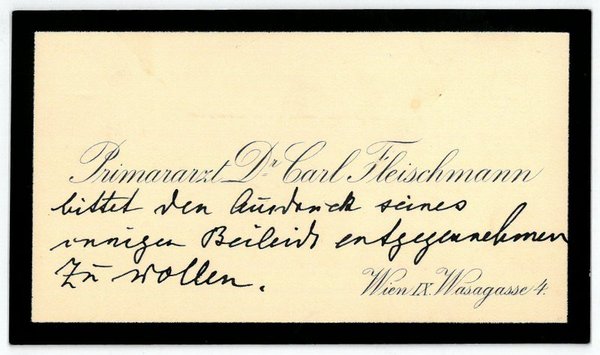 Primararzt Dr Carl Fleischmann
bittet den Ausdruck seines
innigen Beileids entgegennehmen
zu wollen.
Wien IX. Wasagasse 4.